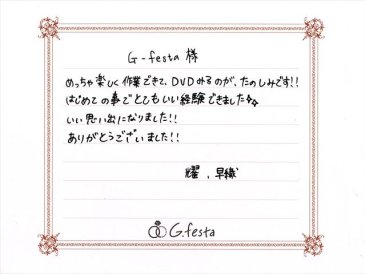 G-festa 様
めっちゃ楽しく作業できて、DVDみるのが、たのしみです!!
はじめての事でとてもいい経験できました☆☆
いい思い出になりました!!
ありがとうございました!!
耀、早織
G.festa